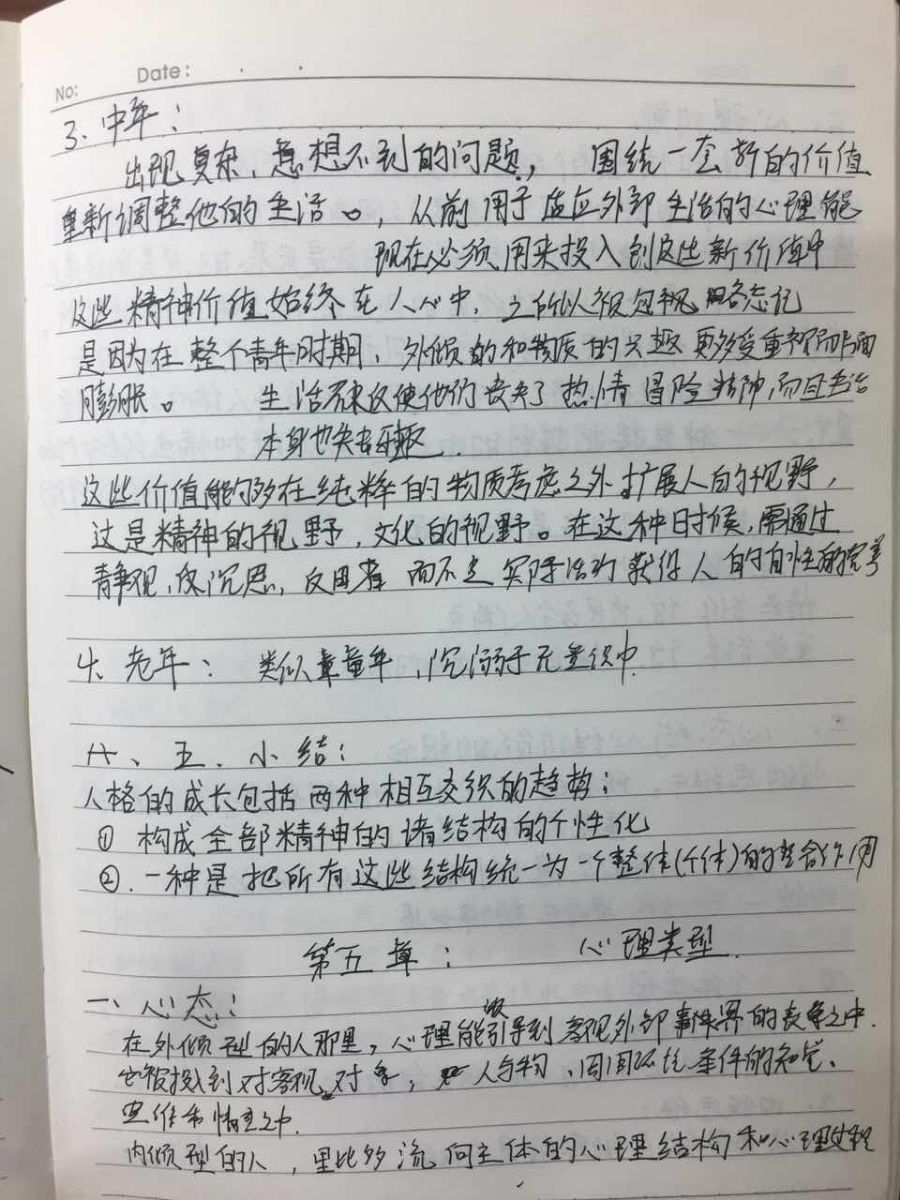 No:
Date:
3、中年：
出现复杂、意想不到的问题， 围绕一套新的价值
重新调整他的生活。，从前用于适应外部生活的心理能
现在必须用来投入到这些新价值中
这些精神价值始终在人心中，之所以被忽视 忘记
是因为在整个青年时期，外倾的和物质的兴趣更多受重视而片面
膨胀。 生活不仅使他们丧失了热情冒险精神，而且生活
本身也失去乐趣
这些价值能够在纯粹的物质考虑之外扩展人的视野，
这是精神的视野，文化的视野。在这种时候，需通过
静观、沉思、反思 而不是实际活动获得人的自性的完善
4、老年： 类似童年，沉溺于无意识中
五、小结：
人格的成长包括两种相互交织的趋势：
① 构成全部精神的诸结构的个性化
②.一种是把所有这些结构统一为一个整体(个体)的整合作用
第五章： 心理类型
一、心态：
在外倾型的人那里，心理能被引导到客观外部世界的表象之中.
也被投入到对客观对象， 人与物、周围环境条件的知觉、
思维和情感之中.
内倾型的人，里比多流向主体的心理结构和心理过程